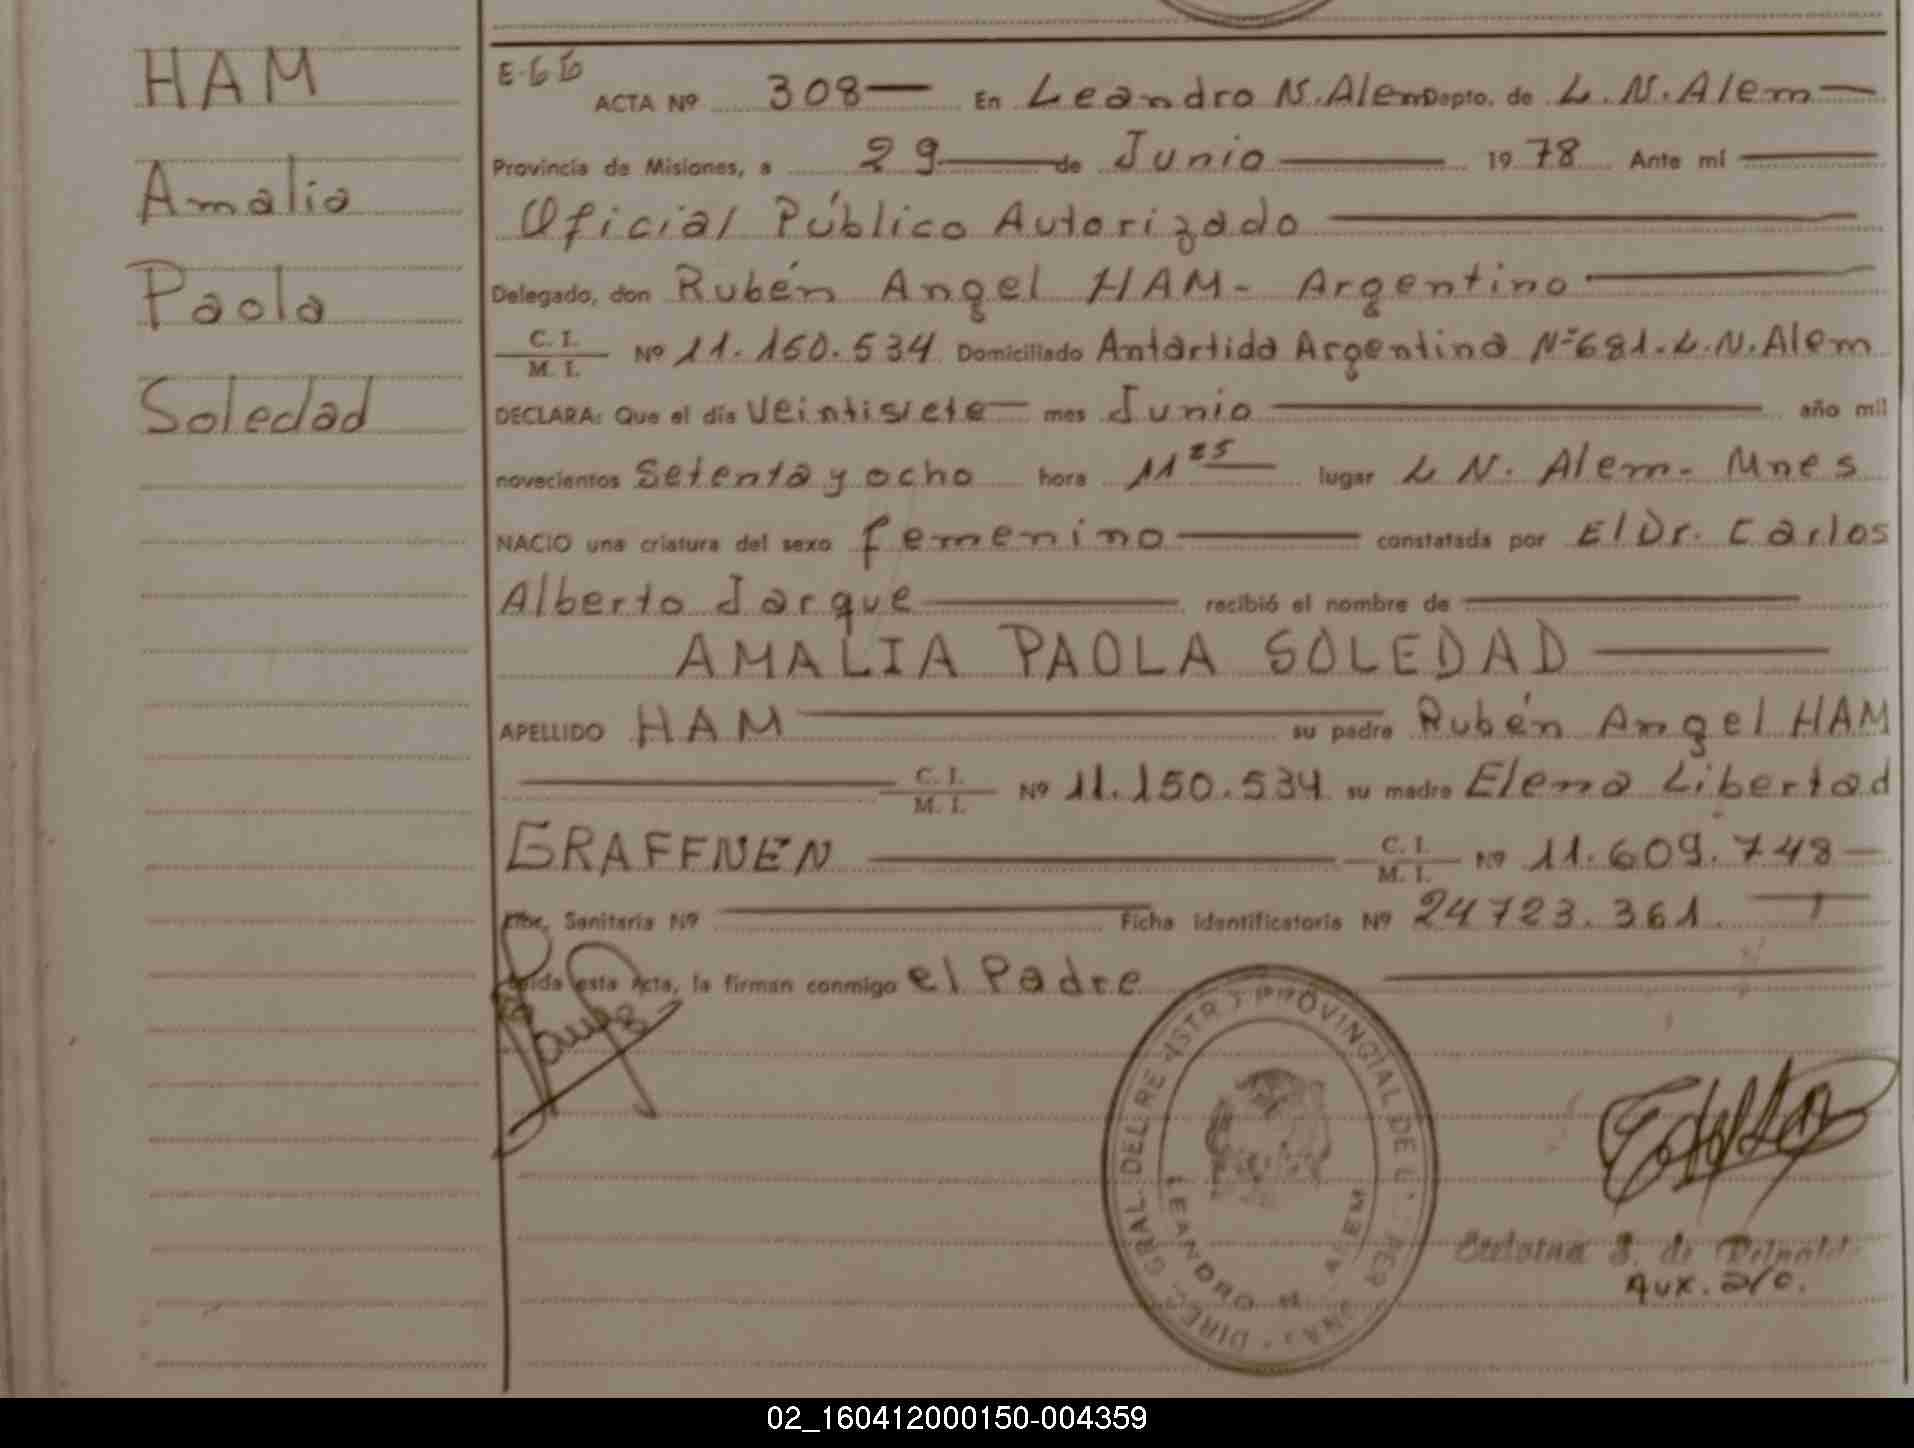 HAM
Amalia
Paola
Soledad
E-66
ACTA Nº 308 En Leandro N. Alem Depto. de L. N. Alem
Provincia de Misiones, a 29 de Junio 1978 Ante mí
Oficial Público Autorizado
Delegado, don Rubén Angel HAM - Argentino
C. I. / M. I. Nº 11.150.534 Domiciliado Antártida Argentina Nº 681. L. N. Alem
DECLARA: Que el día Veintisiete mes Junio año mil
novecientos Setenta y ocho hora 11 25 lugar L N. Alem - Mnes
NACIO una criatura del sexo femenino constatada por El Dr. Carlos
Alberto Jarque recibió el nombre de
AMALIA PAOLA SOLEDAD
APELLIDO HAM su padre Rubén Angel HAM
C. I. / M. I. Nº 11.150.534 su madre Elena Libertad
GRAFFNEN C. I. / M. I. Nº 11.609.748
Libr. Sanitaria Nº Ficha identificatoria Nº 24723.361
Leída esta Acta, la firman conmigo el Padre
DIREC. GRAL. DEL REGISTRO PROVINCIAL DE
LEANDRO N. ALEM
Aux. a/c.
02_160412000150-004359